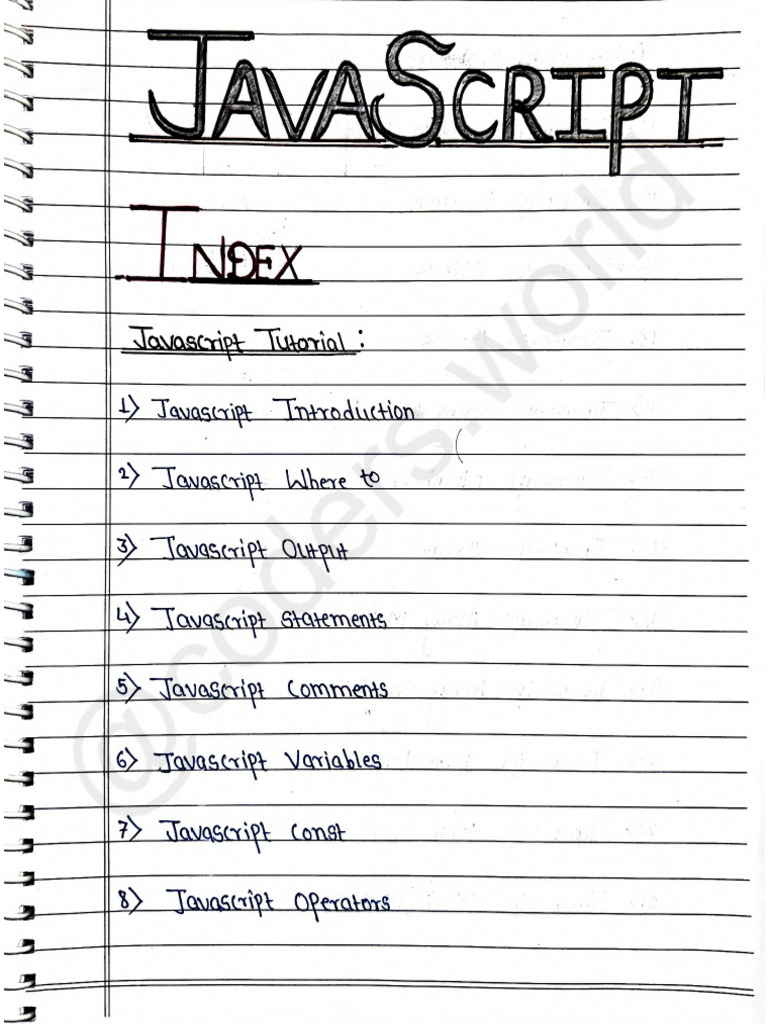 JAVASCRIPT
INDEX
Javascript Tutorial :
1) Javascript Introduction
2) Javascript Where to
3) Javascript Output
4) Javascript statements
5) Javascript Comments
6) Javascript Variables
7) Javascript Const
8) Javascript Operators
@coders.world